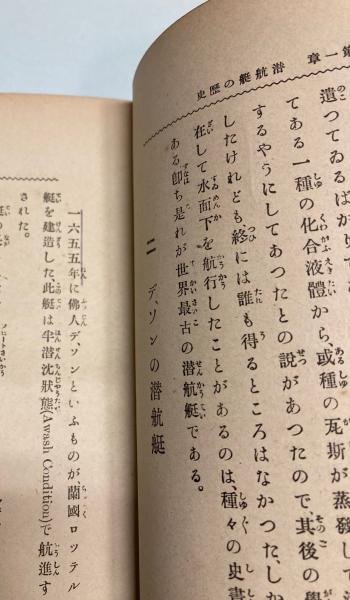 第一章 潜航艇の歴史
遺つてゐるばかりで
てある一種の化合液體から、或種の瓦斯が蒸發して
するやうにしてあつたとの説があつたので、其後の學
したけれども終には誰も得るところはなかつた、しか
在して水面下を航行したことがあるのは、種々の史書
ある即ち是れが世界最古の潜航艇である。
二 デ、ソンの潜航艇
一六五五年に佛人デ、ソンといふものが、蘭國ロツテル
艇を建造した此艇は半潜沈狀態(Awash Condition)で航進す
された。